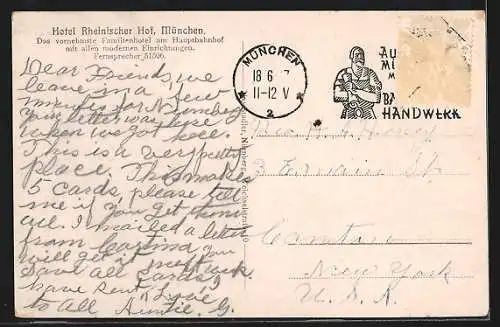 Hotel Rheinischer Hof, München.
Das vornehmste Familienhotel am Hauptbahnhof
mit allen modernen Einrichtungen.
Fernsprecher 51596.
Dear Friend, we
leave in a few
minutes for Nürnberg
your letter was here
when we got here.
This is a very pretty
place. This makes
5 cards, please tell
me if you get them
all. I mailed a letter
from
will get it next week
you
save all cards I
have sent. Love
to all Auntie G.
MÜNCHEN
18 6 7
11-12 V
* *
2
AU
MI
M
BA
HANDWERK
Mrs.
St.
New York
U. S. A.